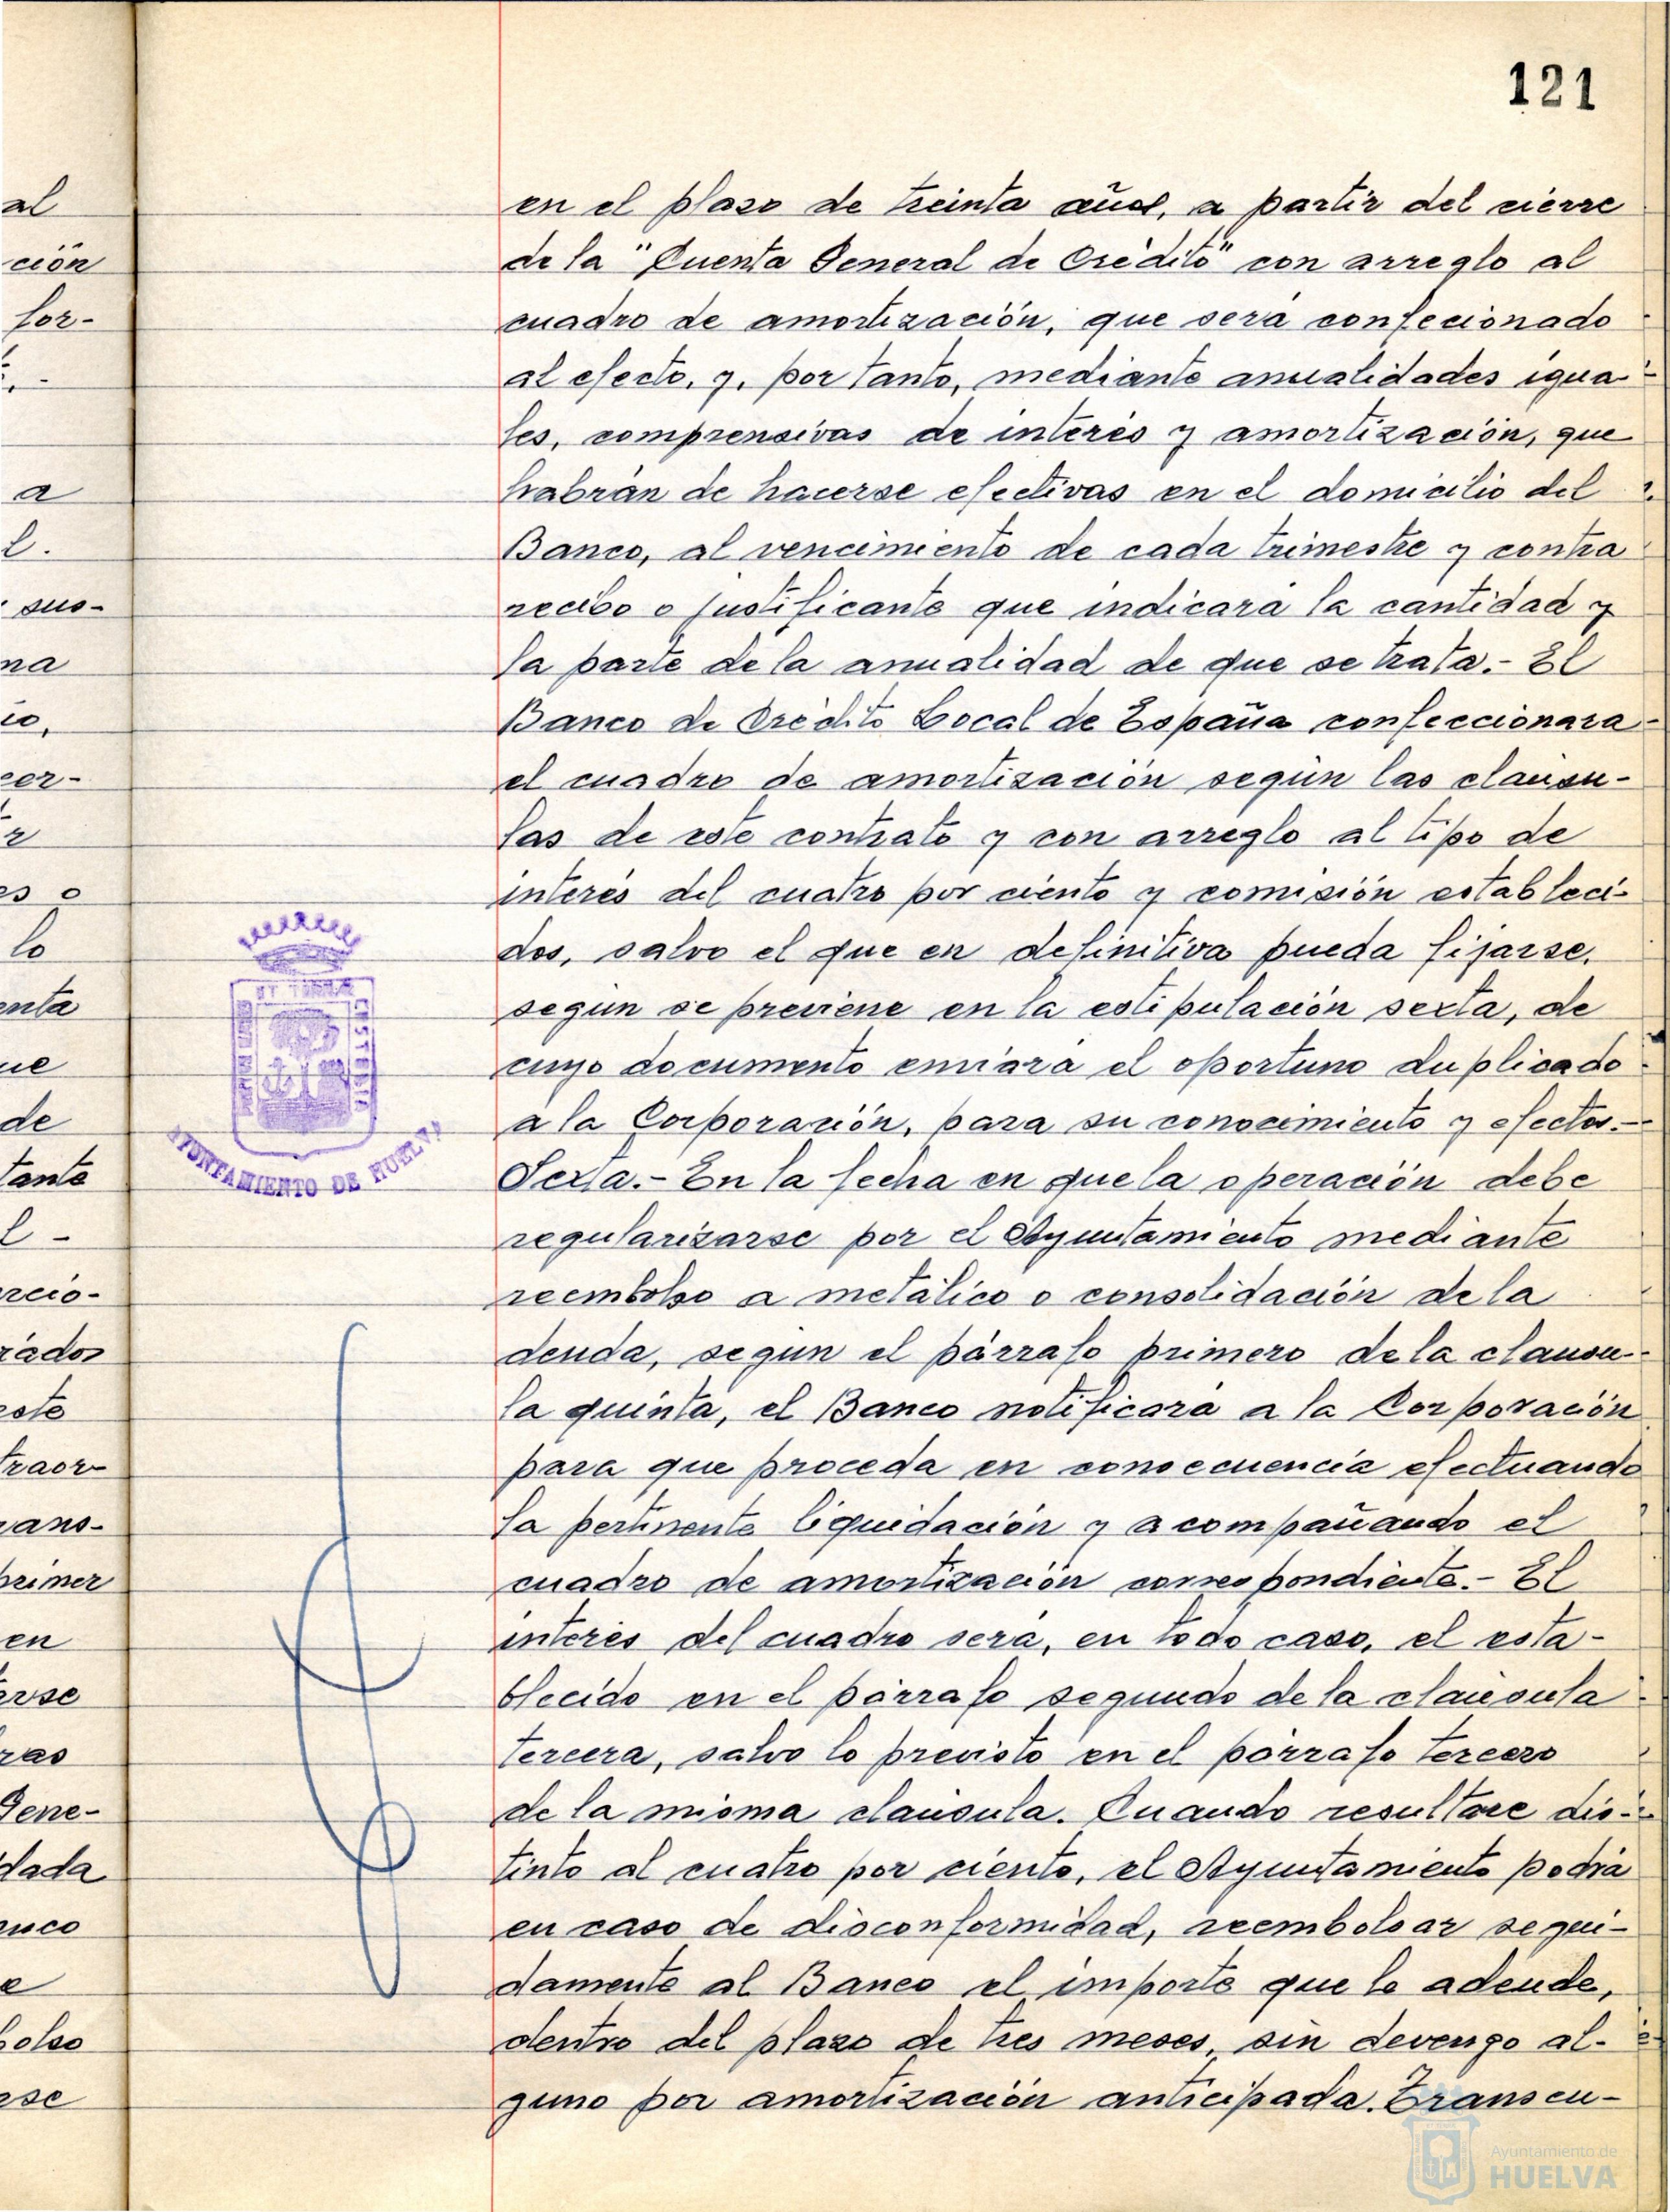 121
al
ción
for-
a
l.
sus-
na
io,
cer-
r
es o
lo
enta
ue
de
tante
l -
rcio-
rados
este
traor-
rans-
primer
en
erse
ras
Gene-
dada
anco
e
bolso
rse
en el plazo de treinta años, a partir del cierre
de la "Cuenta General de Crédito" con arreglo al
cuadro de amortización, que será confecionado
al efecto, y, por tanto, mediante anualidades igua-
les, comprensivas de interés y amortización, que
habrán de hacerse efectivas en el domicilio del
Banco, al vencimiento de cada trimestre y contra
recibo o justificante que indicará la cantidad y
la parte de la anualidad de que se trata.- El
Banco de Crédito Local de España confeccionara
el cuadro de amortización según las cláusu-
las de este contrato y con arreglo al tipo de
interés del cuatro por ciento y comisión estableci-
dos, salvo el que en definitiva pueda fijarse,
según se previene en la estipulación sexta, de
cuyo documento enviará el oportuno duplicado
a la Corporación, para su conocimiento y efectos.-
Sexta.- En la fecha en que la operación debe
regularizarse por el Ayuntamiento mediante
reembolso a metálico o consolidación de la
deuda, según el párrafo primero de la cláusu-
la quinta, el Banco notificará a la Corporación
para que proceda en consecuencia efectuando
la pertinente liquidación y acompañando el
cuadro de amortización correspondiente.- El
interés del cuadro será, en todo caso, el esta-
blecido en el párrafo segundo de la cláusula
tercera, salvo lo previsto en el párrafo tercero
de la misma cláusula. Cuando resultare dis-
tinto al cuatro por ciento, el Ayuntamiento podrá
en caso de disconformidad, reembolsar segui-
damente al Banco el importe que le adeude,
dentro del plazo de tres meses, sin devengo al-
guno por amortización anticipada. Transcu-
AYUNTAMIENTO DE HUELVA
Ayuntamiento de
HUELVA